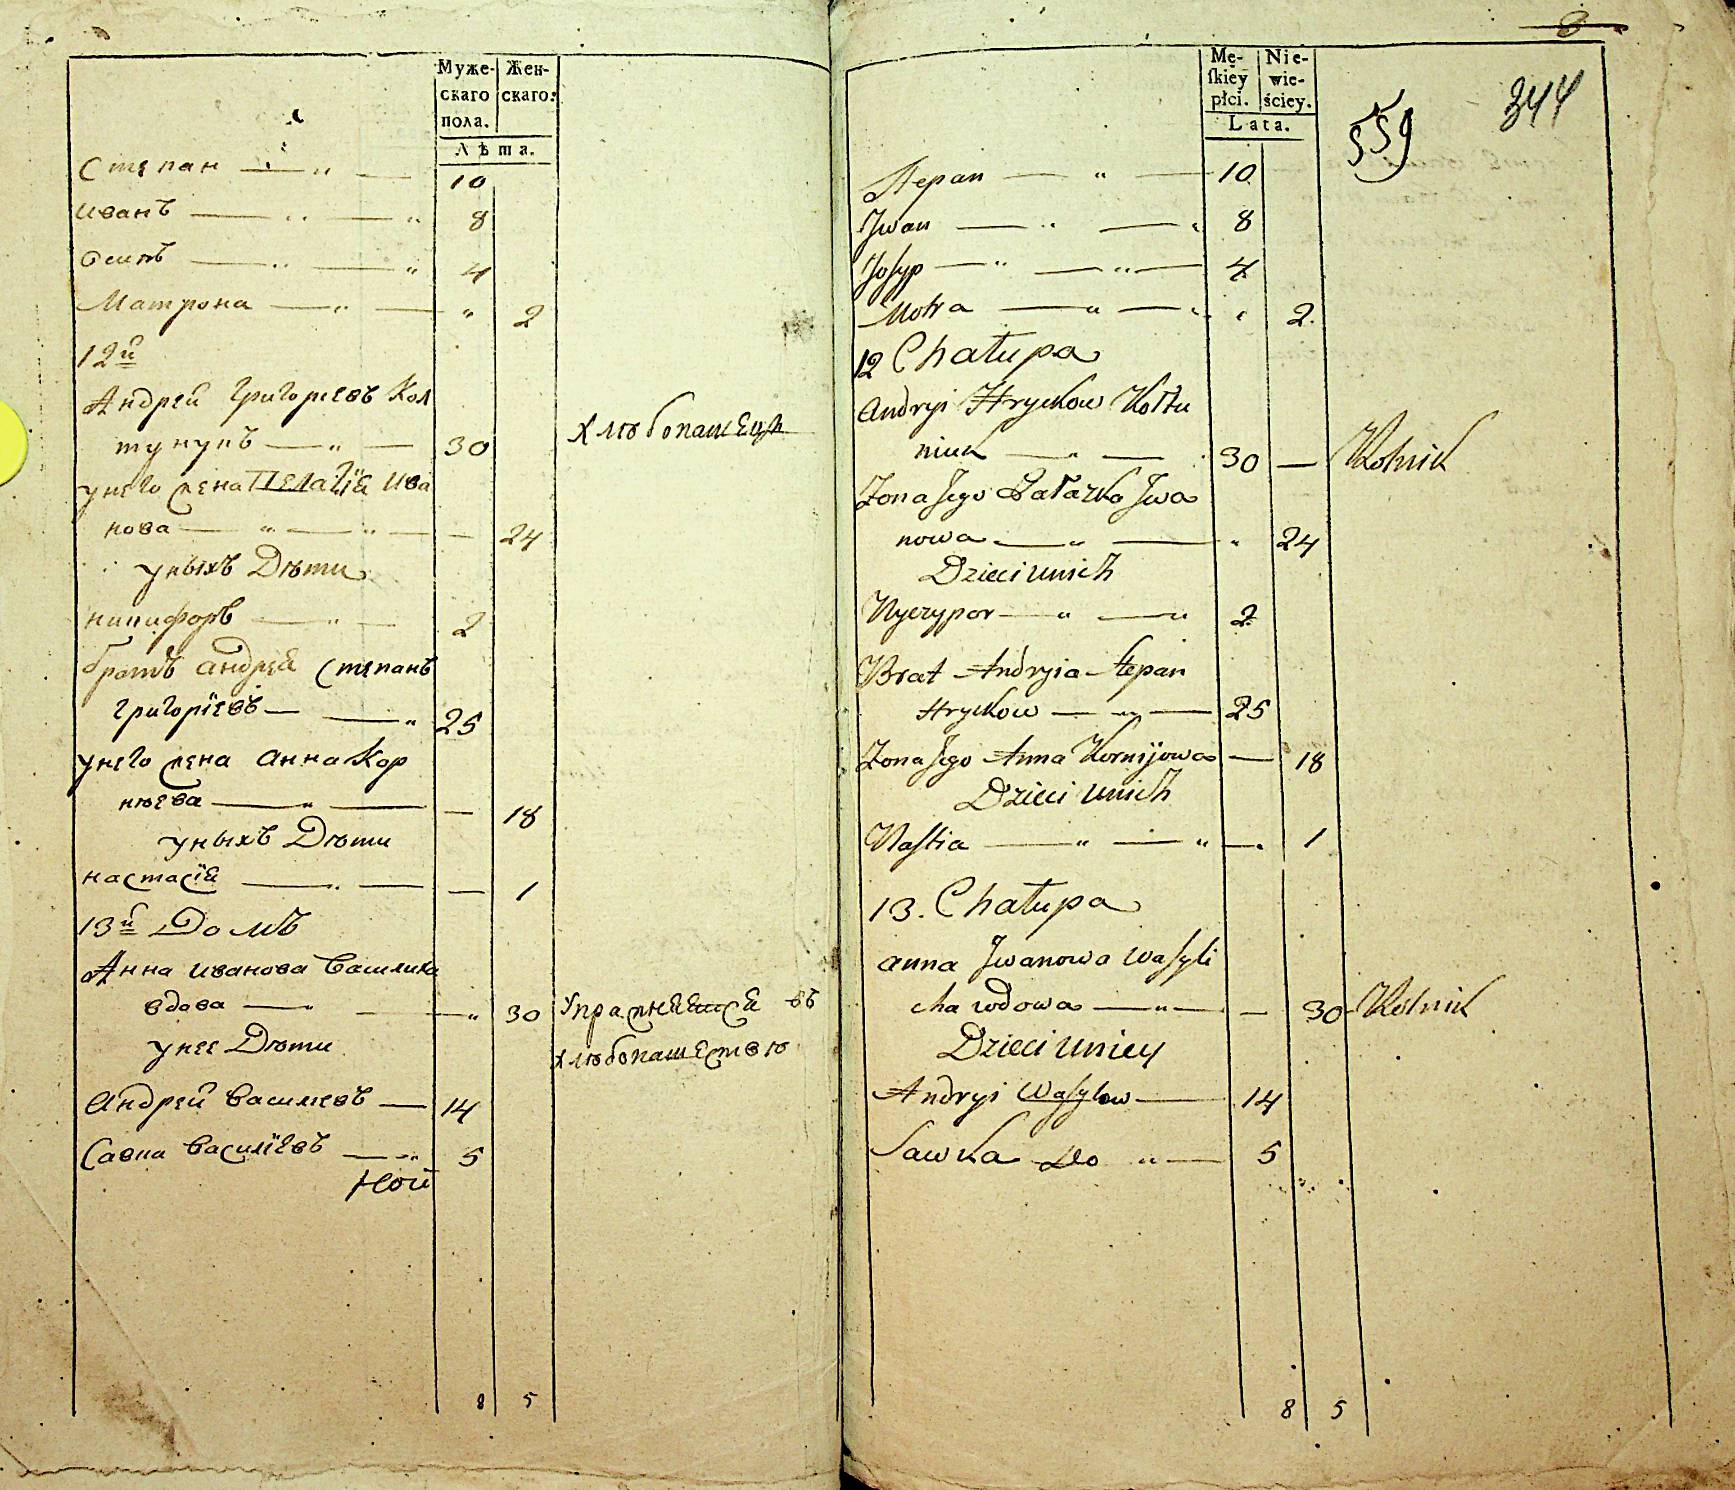 Муже-
скаго
пола.
Жен-
скаго:
Лѣта.
Степан — " — 10
Иванъ — " — " 8
Осипъ — " — " 4
Матрона — " — " 2
12й
Андрей Григориевъ Кол
тунукъ — " — 30 хлѣбопашецъ
унего жена Пелагія Ива
нова — " — " — — 24
уныхъ Дѣти
никифоръ — " — 2
братъ андрея Степанъ
Григоріевъ — — " 25
унего жена Анна Кор
нѣева — " — — 18
уныхъ Дѣти
настасія — " — — 1
13й Домъ
Анна Иванова Василиха
вдова — " — " 30 Упражняется въ
унее Дѣти хлѣбопашество
Андрей Василиевъ — 14
Савка Василіевъ — " 5
Ной
8 5
8
Mę-
ſkiey
płci.
Nie-
wie-
ściey.
Lata.
559
344
Stepan — " — 10
Jwan — " — " 8
Josyp — " — " — 4
Motra — " — " " 2.
12 Chałupa
Andryi Hryckow Kołtu
niuk — " — 30 — Rolnik
Zona Jego Pałazka Jwa
nowa — " — " 24
Dzieci unich
Nyczypor — " — " 2
Brat Andryia Stepan
Hryckow — " — 25
Zona Jego Anna Kornijowa — 18
Dzieci unich
Nastia — " — " — 1
13. Chałupa
Anna Jwanowa Wasyli
cha wdowa — " — — 30 Rolnik
Dzieci uniey
Andryi Wasylow — 14
Sawka Do " — 5
8 5